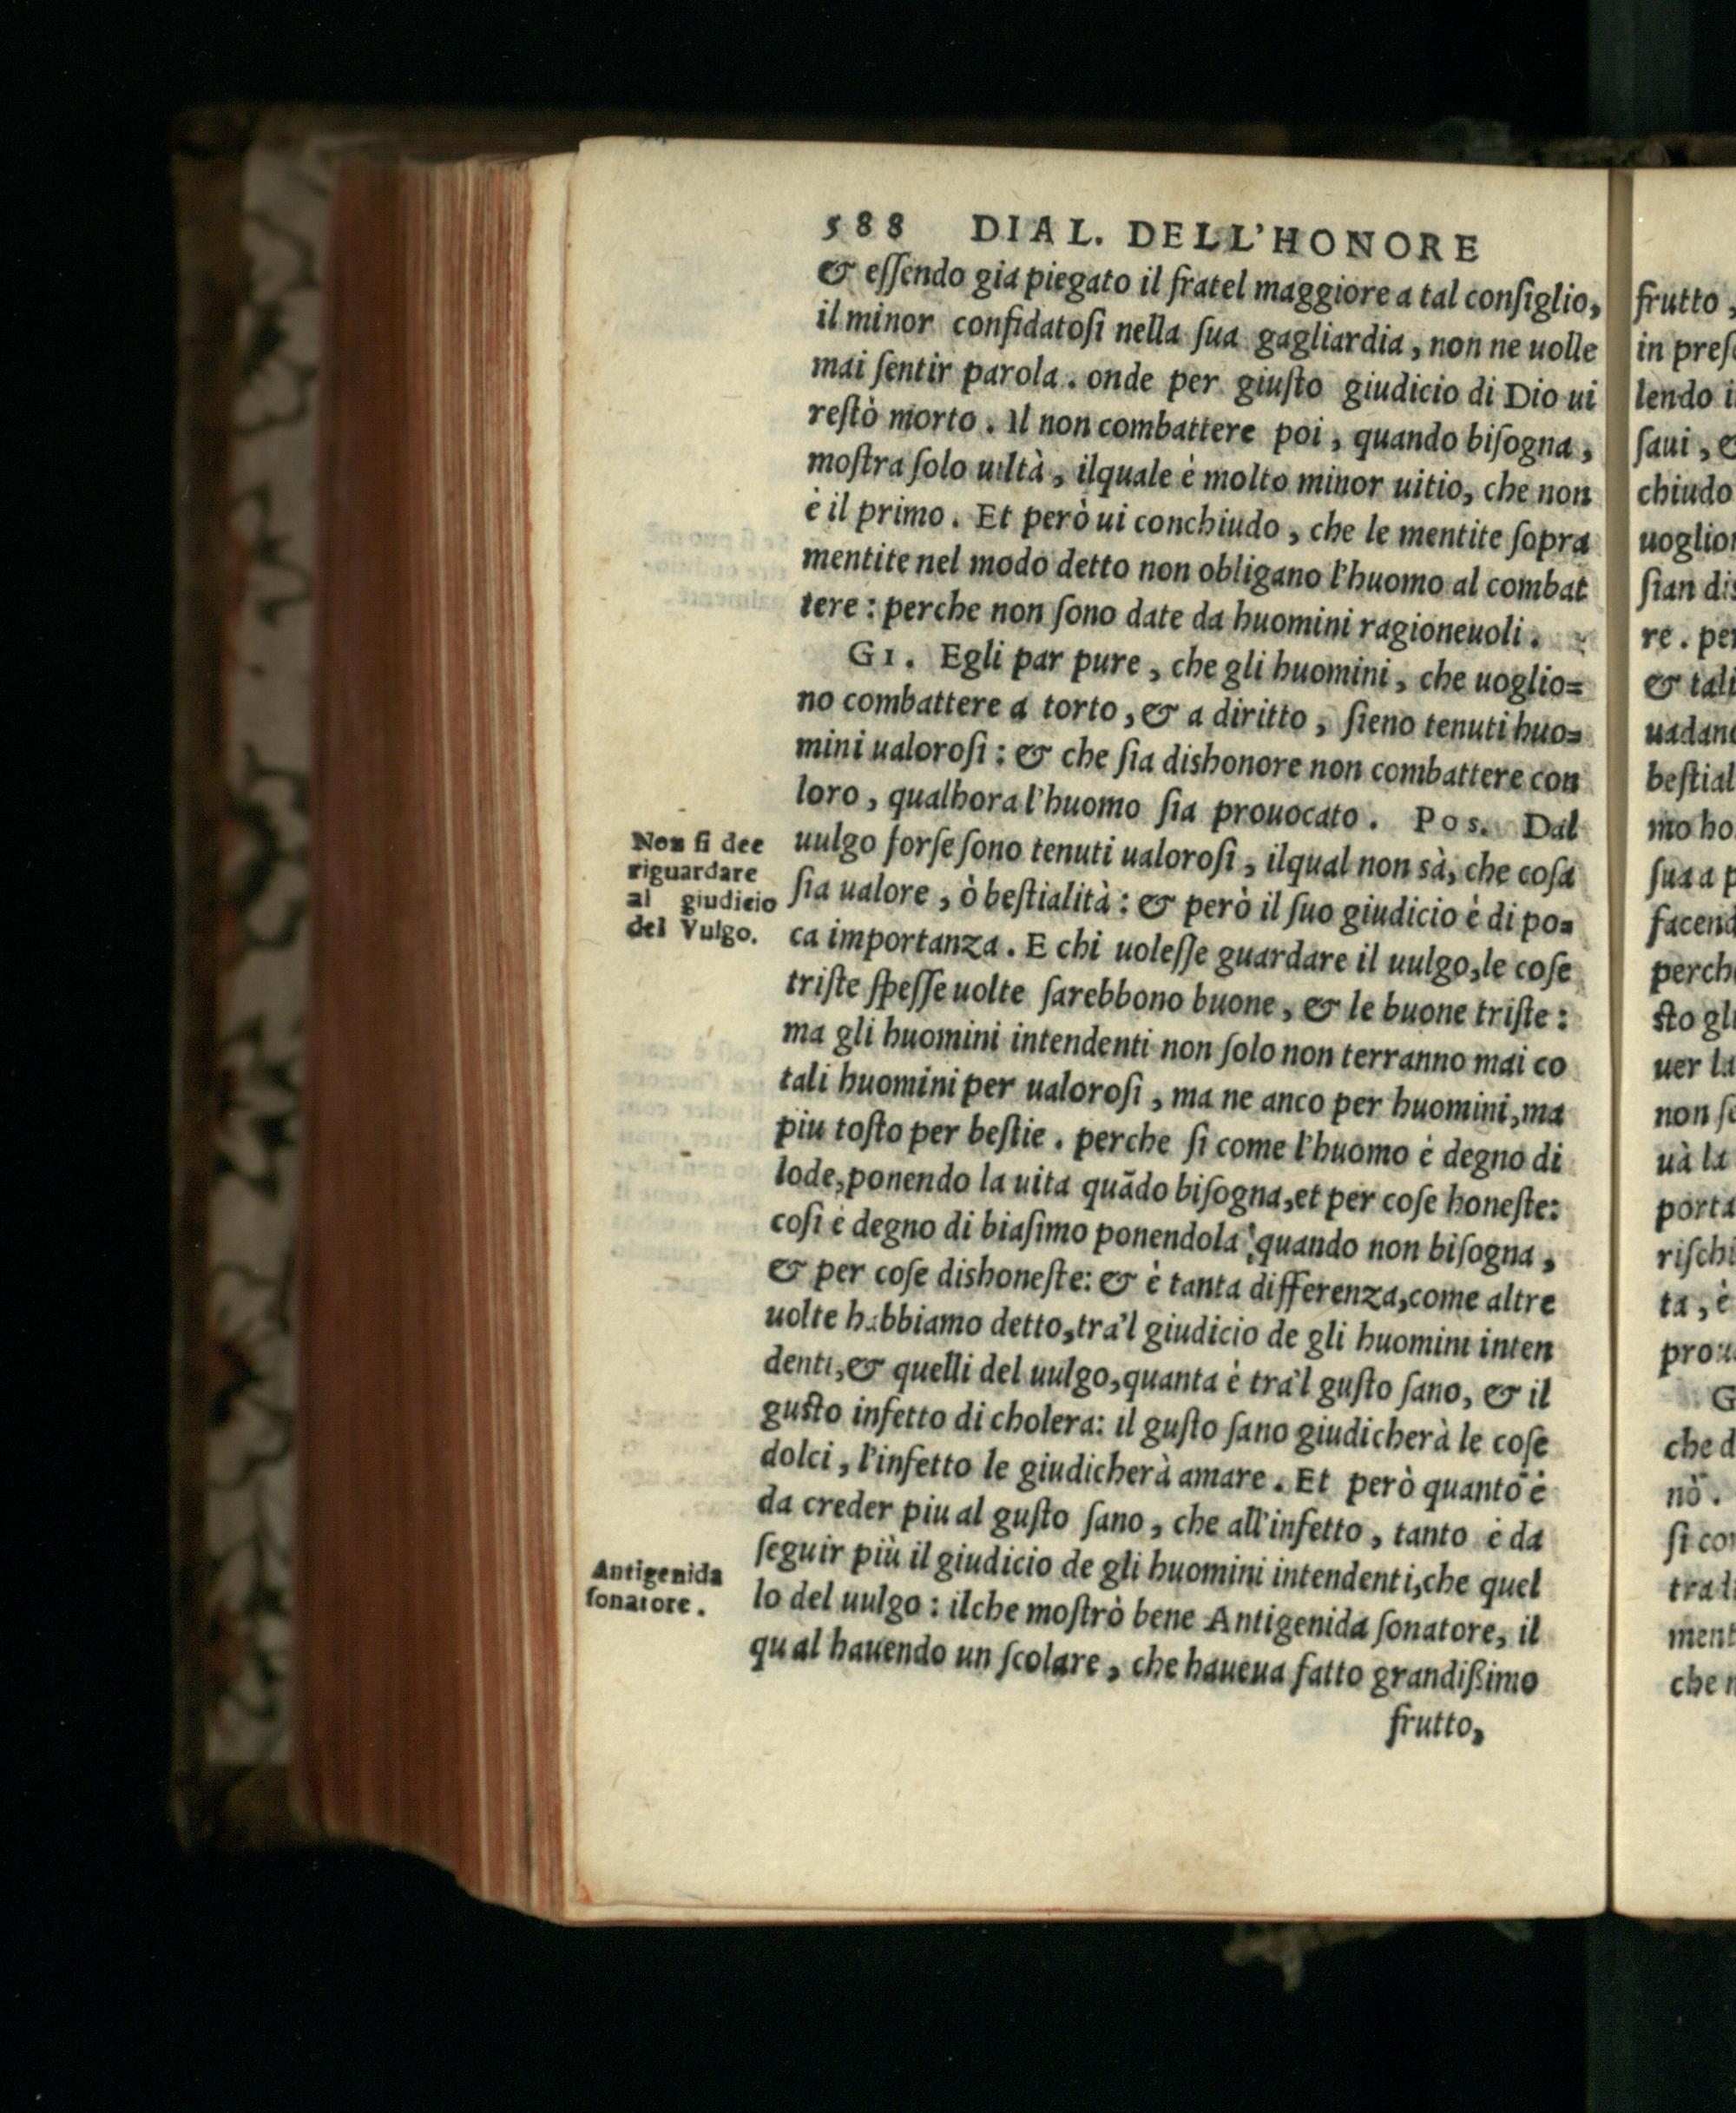 588 DIAL. DELL'HONORE
& eſſendo gia piegato il fratel maggiore a tal conſiglio,
il minor confidatoſi nella ſua gagliardia, non ne uolle
mai ſentir parola. onde per giuſto giudicio di Dio ui
reſtò morto. Il non combattere poi, quando biſogna,
moſtra ſolo uiltà, ilquale è molto minor uitio, che non
è il primo. Et però ui conchiudo, che le mentite ſopra
mentite nel modo detto non obligano l'huomo al combat
tere: perche non ſono date da huomini ragioneuoli.
GI. Egli par pure, che gli huomini, che uoglio=
no combattere a torto, & a diritto, ſieno tenuti huo=
mini ualoroſi: & che ſia dishonore non combattere con
loro, qualhora l'huomo ſia prouocato. Pos. Dal
uulgo forſe ſono tenuti ualoroſi, ilqual non sà, che coſa
ſia ualore, ò beſtialità: & però il ſuo giudicio è di po=
ca importanza. E chi uoleſſe guardare il uulgo, le coſe
triſte ſpeſſe uolte ſarebbono buone, & le buone triſte:
ma gli huomini intendenti non ſolo non terranno mai co
tali huomini per ualoroſi, ma ne anco per huomini, ma
piu toſto per beſtie. perche ſi come l'huomo è degno di
lode, ponendo la uita quãdo biſogna, et per coſe honeſte:
coſi è degno di biaſimo ponendola quando non biſogna,
& per coſe dishoneſte: & è tanta differenza, come altre
uolte habbiamo detto, tra'l giudicio de gli huomini inten
denti, & quelli del uulgo, quanta è tra'l guſto ſano, & il
guſto infetto di cholera: il guſto ſano giudicherà le coſe
dolci, l'infetto le giudicherà amare. Et però quanto è
da creder piu al guſto ſano, che all'infetto, tanto è da
ſeguir più il giudicio de gli huomini intendenti, che quel
lo del uulgo: ilche moſtrò bene Antigenida ſonatore, il
qual hauendo un ſcolare, che haueua fatto grandißimo
frutto,
Non ſi dee
riguardare
al giudicio
del Vulgo.
Antigenida
ſonatore.
frutto,
in preſ
lendo i
ſaui, &
chiudo
uoglio
ſian dis
re. per
& tali
uadano
beſtial
mo ho
ſua a p
facend
perche
ſto gli
uer la
non ſe
uà la
porta
riſchi
ta, è
prou
G
che d
nò.
ſi co
tra l
ment
che